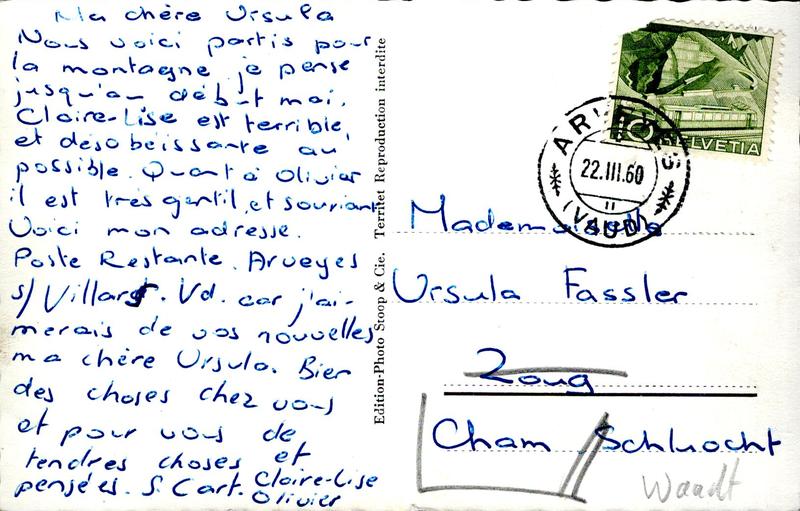 Ma chère Ursula
Nous voici partis pour
la montagne je pense
jusqu'au début mai.
Claire-Lise est terrible,
et désobéissante au
possible. Quant à Olivier
il est très gentil et souriant
Voici mon adresse.
Poste Restante. Arveyes
s/ Villars. Vd. car j'ai-
merais de vos nouvelles
ma chère Ursula. Bien
des choses chez vous
et pour vous de
tendres choses et
pensées. S. Cart. Claire-Lise
Olivier
Edition-Photo Stoop & Cie. Territet Reproduction interdite
10 HELVETIA
ARVEYES
22.III.60
11
(VAUD)
Mademoiselle
Ursula Fassler
Zoug
Cham Schluocht
Waadt